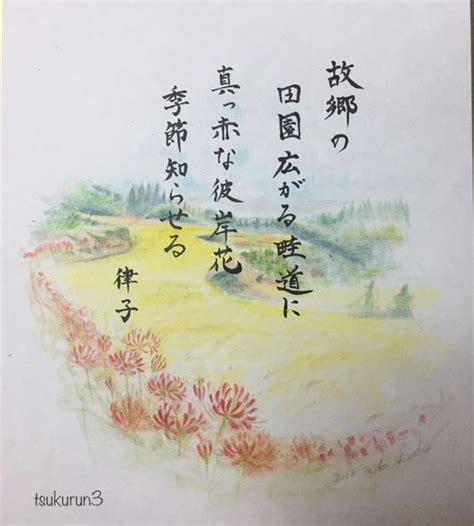 故郷の
田園広がる畦道に
真っ赤な彼岸花
季節知らせる
律子
2018
tsukurun3